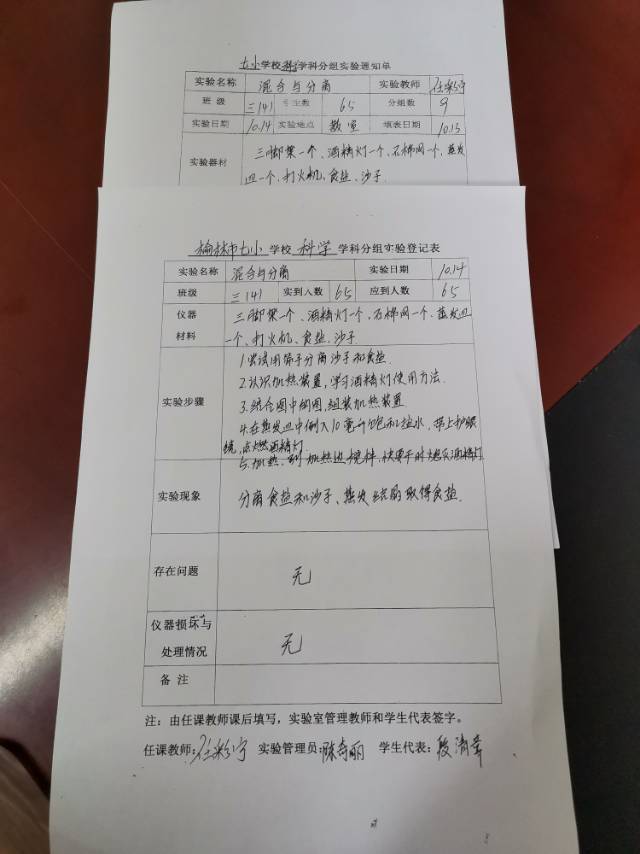 七小学校科学学科分组实验通知单
实验名称 混合与分离 实验教师 任彩宁
班 级 三(4) 学生数 65 分组数 9
实验日期 10.14 实验地点 教室 填表日期 10.13
实验器材 三脚架一个、酒精灯一个、石棉网一个、蒸发
皿一个、打火机、食盐、沙子.
榆林市七小学校 科学 学科分组实验登记表
实验名称 混合与分离 实验日期 10.14
班级 三(4) 实到人数 65 应到人数 65
仪器 三脚架一个、酒精灯一个、石棉网一个、蒸发皿一
材料 个、打火机、食盐、沙子
1.尝试用筛子分离沙子和食盐.
2.认识加热装置,学习酒精灯使用方法.
实验步骤 3.结合图中倒图,组装加热装置
4.在蒸发皿中倒入10毫升饱和盐水,带上护眼
镜,点燃酒精灯
5.加热,边加热边搅拌,快要干时熄灭酒精灯
实验现象 分离食盐和沙子、蒸发结晶取得食盐.
存在问题 无
仪器损坏与
处理情况 无
备 注
注:由任课教师课后填写,实验室管理教师和学生代表签字。
任课教师:任彩宁 实验管理员:陈奇丽 学生代表:段清章